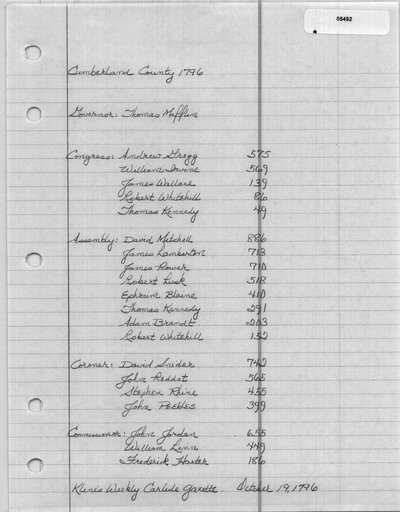 05492
Cumberland County 1796
Governor: Thomas Mifflin
Congress: Andrew Gregg 575
William Irvine 569
James Wallace 139
Robert Whitehill 86
Thomas Kennedy 49
Assembly: David Mitchell 886
James Lamberton 713
James Power 710
Robert Lusk 518
Ephraim Blaine 410
Thomas Kennedy 291
Adam Brandt 203
Robert Whitehill 152
Corner: David Snider 742
John Reddat 565
Stephen Rhine 455
John Peebles 399
Commissioner: John Jordan 655
William Linn 449
Frederick Harter 186
Kline's Weekly Carlisle Gazette. October 19, 1796